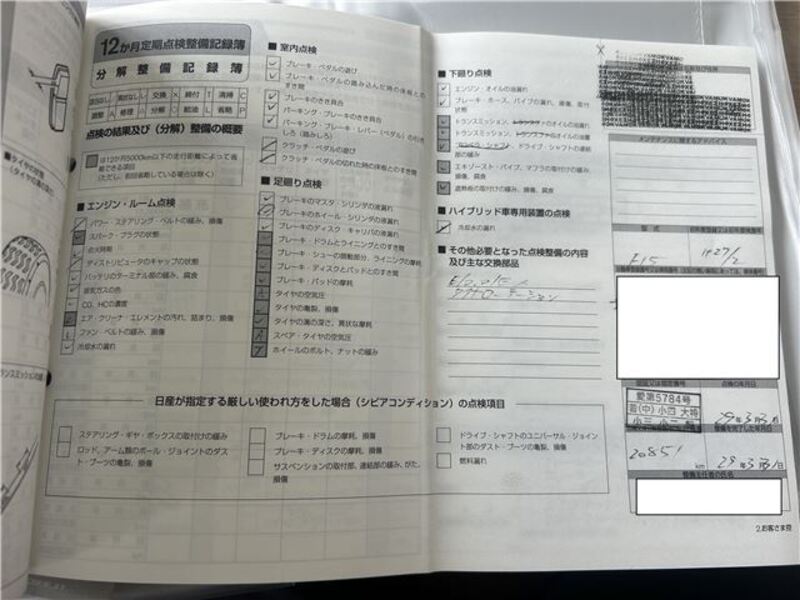 12か月定期点検整備記録簿
分解整備記録簿
交換 × 締付 T 清掃 C
調整 A 修理 △ 分解 ○ 給油 L 省略 P
点検の結果及び(分解)整備の概要
は12か月5000km以下の走行距離によって省
略できる項目
(ただし、前回省略している場合は除く)
■エンジン・ルーム点検
パワー・ステアリング・ベルトの緩み、損傷
スパーク・プラグの状態
点火時期
ディストリビュータのキャップの状態
バッテリのターミナル部の緩み、腐食
排気ガスの色
CO、HCの濃度
エア・クリーナ・エレメントの汚れ、詰まり、損傷
ファン・ベルトの緩み、損傷
冷却水の漏れ
■室内点検
ブレーキ・ペダルの遊び
ブレーキ・ペダルの踏み込んだ時の床板との
すき間
ブレーキのきき具合
パーキング・ブレーキのきき具合
パーキング・ブレーキ・レバー(ペダル)の引き
しろ(踏みしろ)
クラッチ・ペダルの遊び
クラッチ・ペダルの切れた時の床板とのすき間
■足廻り点検
ブレーキのマスタ・シリンダの液漏れ
ブレーキのホイール・シリンダの液漏れ
ブレーキのディスク・キャリパの液漏れ
ブレーキ・ドラムとライニングとのすき間
ブレーキ・シューの摺動部分、ライニングの摩耗
ブレーキ・ディスクとパッドとのすき間
ブレーキ・パッドの摩耗
タイヤの空気圧
タイヤの亀裂、損傷
タイヤの溝の深さ、異状な摩耗
スペア・タイヤの空気圧
ホイールのボルト、ナットの緩み
■下廻り点検
エンジン・オイルの漏れ
ブレーキ・ホース、パイプの漏れ、損傷、取付
状態
トランスミッション、トランスファのオイルの漏れ
トランスミッション、トランスファのオイルの油量
プロペラ・シャフト、ドライブ・シャフトの連結
部の緩み
エキゾースト・パイプ、マフラの取付けの緩み、
損傷、腐食
遮熱板の取付けの緩み、損傷、腐食
■ハイブリッド車専用装置の点検
冷却水の漏れ
■その他必要となった点検整備の内容
及び主な交換部品
タイヤローテーション
メンテナンスに関するアドバイス
型式
F15
H27/2
日産が指定する厳しい使われ方をした場合(シビアコンディション)の点検項目
ステアリング・ギヤ・ボックスの取付けの緩み
ロッド、アーム類のボール・ジョイントのダス
ト・ブーツの亀裂、損傷
ブレーキ・ドラムの摩耗、損傷
ブレーキ・ディスクの摩耗、損傷
サスペンションの取付部、連結部の緩み、がた、
損傷
ドライブ・シャフトのユニバーサル・ジョイン
ト部のダスト・ブーツの亀裂、損傷
燃料漏れ
点検の年月日
愛第5784号
普(中)小四 大特
小三 小二 軽
29年3月31日
整備を完了した年月日
20851 km
29年3月31日
整備主任者の氏名
2.お客さま控
■タイヤの状態
(タイヤの溝の深さ)